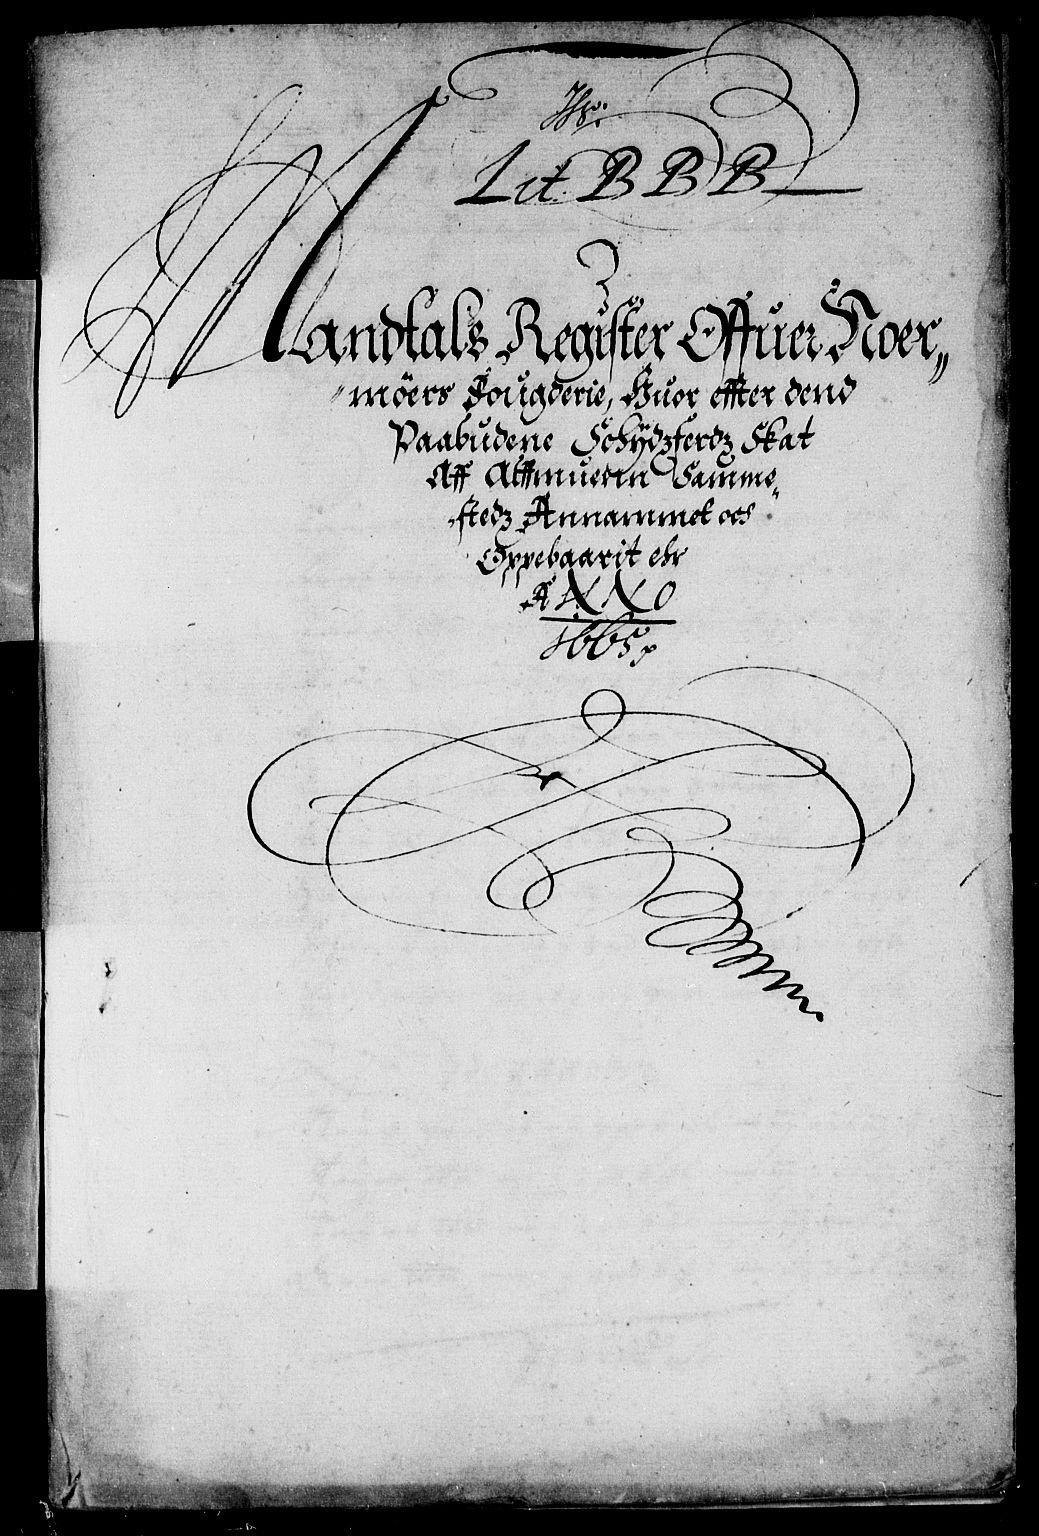 Lit. B B B
Mandtals Register Offuer Noer„
„möers Fougderie, Huor effter dend
Paabudene Schÿdzferdz Skat
Aff Allmuen Samme„
„stedz Annammet och
Oppebaarit ehr
ANNO
1665